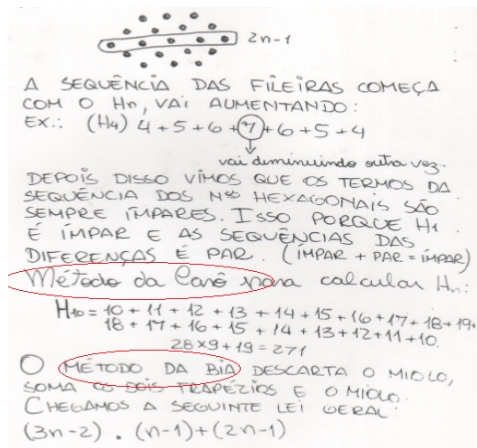 2n-1
A SEQUÊNCIA DAS FILEIRAS COMEÇA
COM O Hn, VAI AUMENTANDO:
EX.: (H4) 4+5+6+7+6+5+4
vai diminuindo outra vez.
DEPOIS DISSO VIMOS QUE OS TERMOS DA
SEQUÊNCIA DOS Nºs HEXAGONAIS SÃO
SEMPRE ÍMPARES. ISSO PORQUE H1
É ÍMPAR E AS SEQUÊNCIAS DAS
DIFERENÇAS É PAR. (ÍMPAR + PAR = ÍMPAR)
Método da Carô para calcular Hn:
H10 = 10 + 11 + 12 + 13 + 14 + 15 + 16 + 17 + 18 + 19+
18 + 17 + 16 + 15 + 14 + 13 + 12 + 11 + 10.
28 x 9 + 19 = 271
O MÉTODO DA BIA DESCARTA O MIOLO,
SOMA OS DOIS TRAPÉZIOS E O MIOLO.
CHEGAMOS A SEGUINTE LEI GERAL:
(3n-2) . (n-1)+(2n-1)